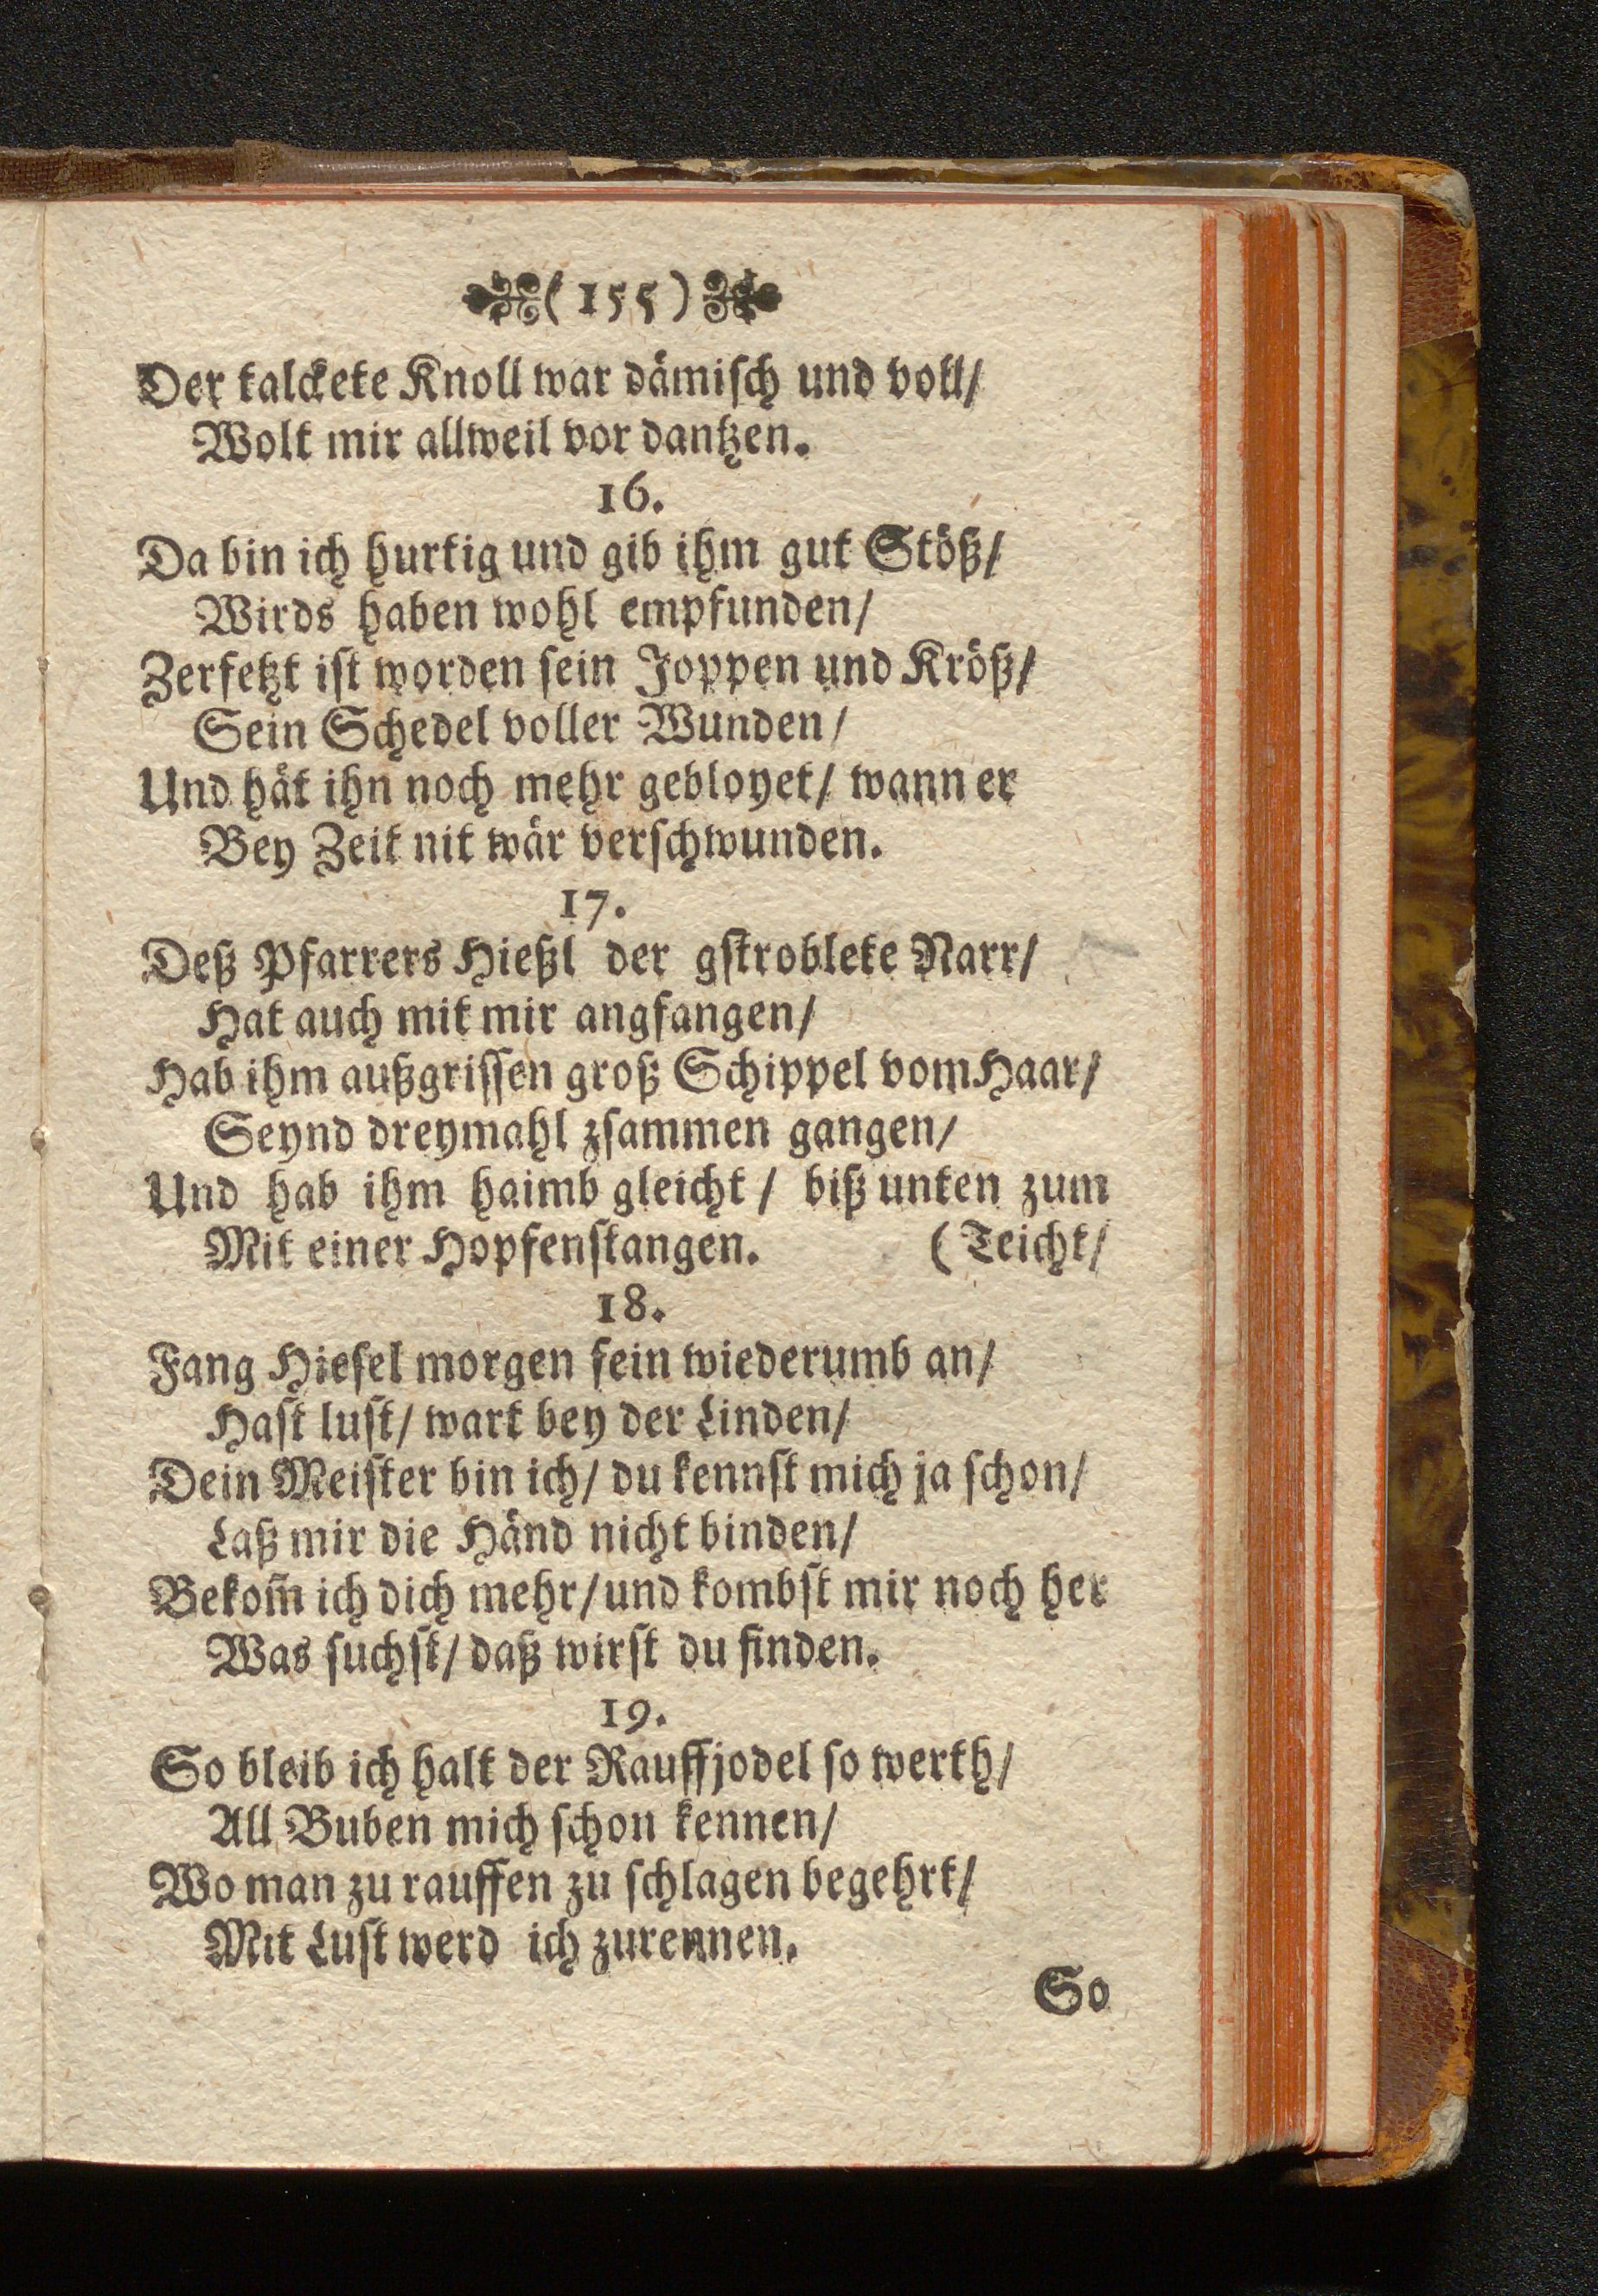 (155)
Der talckete Knoll war dämisch und voll/
Wolt mir allweil vor dantzen.
16.
Da bin ich hurtig und gib ihm gut Stöß/
Wirds haben wohl empfunden/
Zerfetzt ist worden sein Joppen und Kröß/
Sein Schedel voller Wunden/
Und hät ihn noch mehr gebloyet/ wann er
Bey Zeit nit wär verschwunden.
17.
Deß Pfarrers Hießl der gstroblete Narr/
Hat auch mit mir angfangen/
Hab ihm außgrissen groß Schippel vom Haar/
Seynd dreymahl zsammen gangen/
Und hab ihm haimb gleicht / biß unten zum
Mit einer Hopfenstangen. (Teicht/
18.
Fang Hiesel morgen fein wiederumb an/
Hast lust/ wart bey der Linden/
Dein Meister bin ich/ du kennst mich ja schon/
Laß mir die Händ nicht binden/
Bekom̃ ich dich mehr/ und kombst mir noch her
Was suchst/ daß wirst du finden.
19.
So bleib ich halt der Rauffjodel so werth/
All Buben mich schon kennen/
Wo man zu rauffen zu schlagen begehrt/
Mit Lust werd ich zurennen.
So